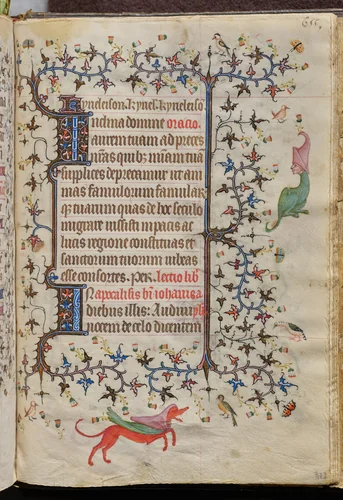 kyrieleison. Xpyel. kyrieleiso
Inclina domine oracio
aurem tuam ad preces
nr̄as quib; m̄iam tuā
supplices deprecamur ut ani
mas famulorum famular
q; tuarum quas de hoc seculo
migrare iussisti in pacis ac
lucis regione constituas et
sanctorum tuorum iubeas
esse consortes. Per. lectio lib
apocalipsis bī iohannis a
diebus illis: Audiui pl̄i
uocem de celo dicentem